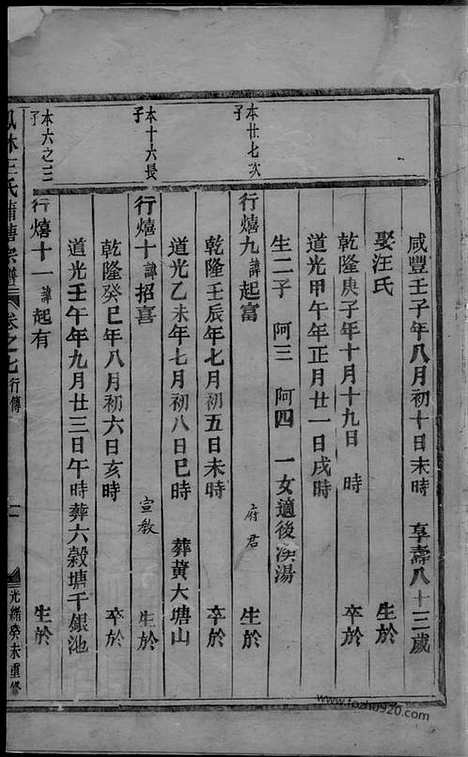 咸豐壬子年八月初十日未時 享壽八十三歲
娶汪氏 生於
乾隆庚子年十月十九日 時 卒於
道光甲午年正月廿一日戌時
生二子 阿三 阿四 一女適後決湯
本廿七次子
行熺九諱起富 府君 生於
乾隆壬辰年七月初五日未時 卒於
道光乙未年七月初八日巳時 葬黃大塘山
本十六長子
行熺十諱招喜 宣教 生於
乾隆癸巳年八月初六日亥時 卒於
道光壬午年九月廿三日午時葬六穀塘千銀池
本六之三子
行熺十一諱起有 生於
鳳林王氏蒲塘宗譜 卷之七行傳 十一 光緒癸未重修
www.fozhu920.com